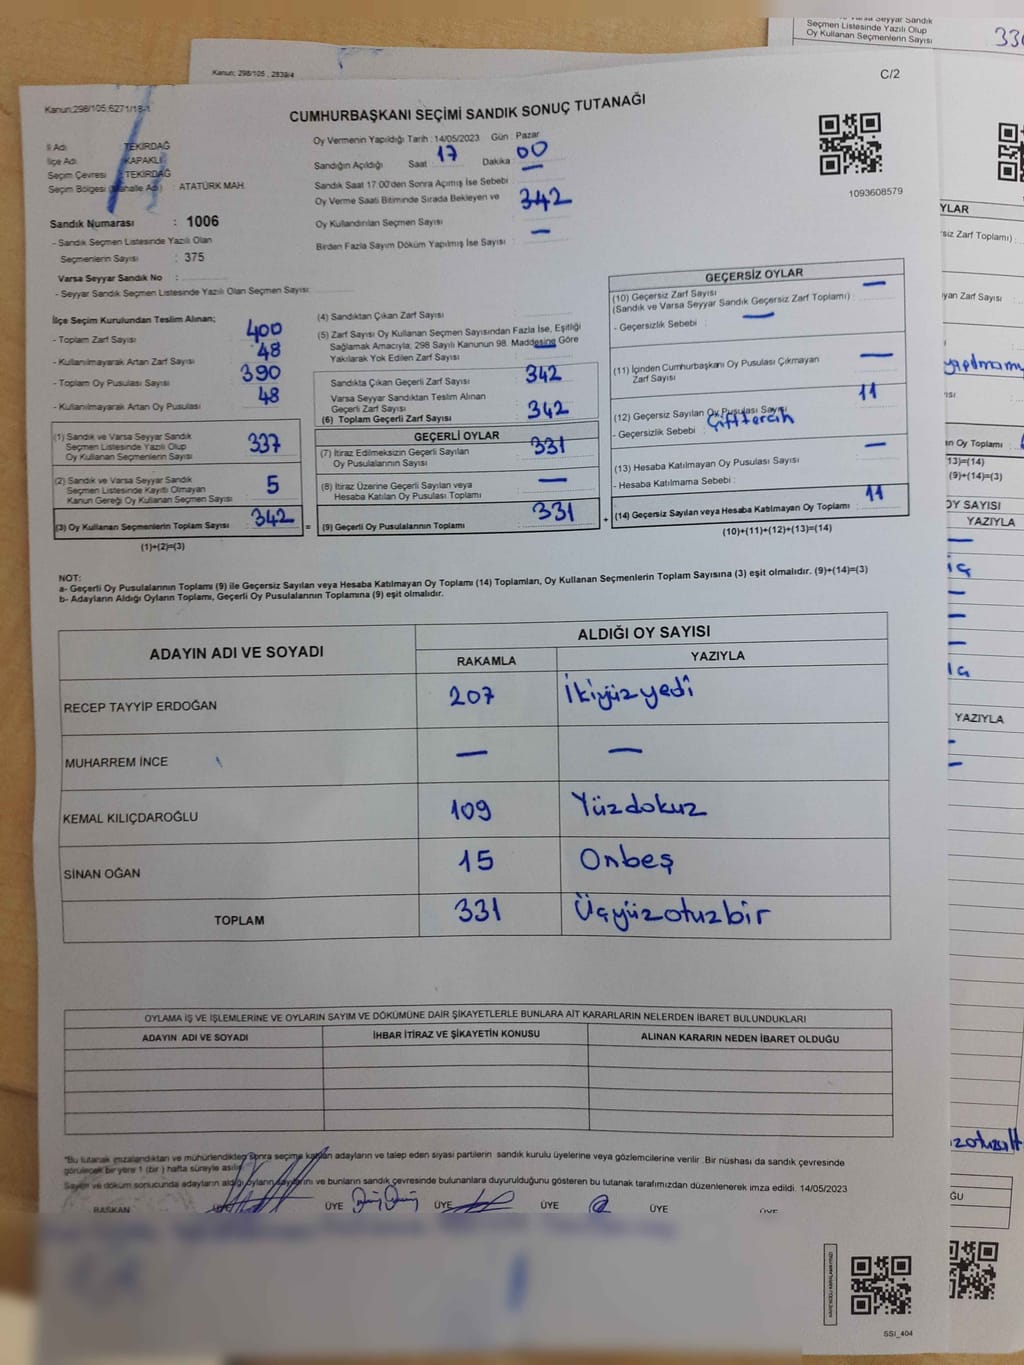 Kanun; 298/105 , 2839/4
Seçmen Listesinde Yazılı Olup
Oy Kullanan Seçmenlerin Sayısı
C/2
CUMHURBAŞKANI SEÇİMİ SANDIK SONUÇ TUTANAĞI
İl Adı : TEKİRDAĞ
İlçe Adı : KAPAKLI
Seçim Çevresi : TEKİRDAĞ
Seçim Bölgesi (Mahalle Adı) : ATATÜRK MAH.
Sandık Numarası : 1006
- Sandık Seçmen Listesinde Yazılı Olan
Seçmenlerin Sayısı : 375
Varsa Seyyar Sandık No :
- Seyyar Sandık Seçmen Listesinde Yazılı Olan Seçmen Sayısı:
Oy Vermenin Yapıldığı Tarih : 14/05/2023 Gün : Pazar
Sandığın Açıldığı Saat : 17 Dakika : 00
Sandık Saat 17.00'den Sonra Açımış İse Sebebi : —
Oy Verme Saati Bitiminde Sırada Bekleyen ve
Oy Kullandırılan Seçmen Sayısı : 342
Birden Fazla Sayım Döküm Yapılmış İse Sayısı : —
1093608579
İlçe Seçim Kurulundan Teslim Alınan;
- Toplam Zarf Sayısı : 400
- Kullanılmayarak Artan Zarf Sayısı : 48
- Toplam Oy Pusulası Sayısı : 390
- Kullanılmayarak Artan Oy Pusulası : 48
(1) Sandık ve Varsa Seyyar Sandık
Seçmen Listesinde Yazılı Olup
Oy Kullanan Seçmenlerin Sayısı : 337
(2) Sandık ve Varsa Seyyar Sandık
Seçmen Listesinde Kayıtlı Olmayan
Kanun Gereği Oy Kullanan Seçmen Sayısı : 5
(3) Oy Kullanan Seçmenlerin Toplam Sayısı : 342 =
(1)+(2)=(3)
(4) Sandıktan Çıkan Zarf Sayısı :
(5) Zarf Sayısı Oy Kullanan Seçmen Sayısından Fazla İse, Eşitliği
Sağlamak Amacıyla, 298 Sayılı Kanunun 98. Maddesine Göre
Yakılarak Yok Edilen Zarf Sayısı : —
Sandıkta Çıkan Geçerli Zarf Sayısı : 342
Varsa Seyyar Sandıktan Teslim Alınan
Geçerli Zarf Sayısı :
(6) Toplam Geçerli Zarf Sayısı : 342
GEÇERLİ OYLAR
(7) İtiraz Edilmeksizin Geçerli Sayılan
Oy Pusulalarının Sayısı : 331
(8) İtiraz Üzerine Geçerli Sayılan veya
Hesaba Katılan Oy Pusulası Toplamı : —
(9) Geçerli Oy Pusulalarının Toplamı : 331 +
GEÇERSİZ OYLAR
(10) Geçersiz Zarf Sayısı
(Sandık ve Varsa Seyyar Sandık Geçersiz Zarf Toplamı) : —
- Geçersizlik Sebebi : —
(11) İçinden Cumhurbaşkanı Oy Pusulası Çıkmayan
Zarf Sayısı : —
(12) Geçersiz Sayılan Oy Pusulası Sayısı : 11
- Geçersizlik Sebebi : Çift tercih
(13) Hesaba Katılmayan Oy Pusulası Sayısı : —
- Hesaba Katılmama Sebebi :
(14) Geçersiz Sayılan veya Hesaba Katılmayan Oy Toplamı : 11
(10)+(11)+(12)+(13)=(14)
NOT:
a- Geçerli Oy Pusulalarının Toplamı (9) ile Geçersiz Sayılan veya Hesaba Katılmayan Oy Toplamı (14) Toplamları, Oy Kullanan Seçmenlerin Toplam Sayısına (3) eşit olmalıdır. (9)+(14)=(3)
b- Adayların Aldığı Oyların Toplamı, Geçerli Oy Pusulalarının Toplamına (9) eşit olmalıdır.
ADAYIN ADI VE SOYADI ALDIĞI OY SAYISI
RAKAMLA YAZIYLA
RECEP TAYYİP ERDOĞAN 207 İkiyüzyedi
MUHARREM İNCE — —
KEMAL KILIÇDAROĞLU 109 Yüzdokuz
SİNAN OĞAN 15 Onbeş
TOPLAM 331 Üçyüzotuzbir
OYLAMA İŞ VE İŞLEMLERİNE VE OYLARIN SAYIM VE DÖKÜMÜNE DAİR ŞİKAYETLERLE BUNLARA AİT KARARLARIN NELERDEN İBARET BULUNDUKLARI
ADAYIN ADI VE SOYADI İHBAR İTİRAZ VE ŞİKAYETİN KONUSU ALINAN KARARIN NEDEN İBARET OLDUĞU
*Bu tutanak imzalandıktan ve mühürlendikten sonra seçime katılan adayların ve talep eden siyasi partilerin sandık kurulu üyelerine veya gözlemcilerine verilir .Bir nüshası da sandık çevresinde
görülecek bir yere 1 (bir ) hafta süreyle asılır.
Sayım ve döküm sonucunda adayların aldığı oyların sayılarını ve bunların sandık çevresinde bulunanlara duyurulduğunu gösteren bu tutanak tarafımızdan düzenlenerek imza edildi. 14/05/2023
BAŞKAN ÜYE ÜYE ÜYE ÜYE ÜYE
SSI_404
YLAR
Zarf Toplamı) :
Zarf Sayısı :
Oy Toplamı :
13)=(14)
(9)+(14)=(3)
OY SAYISI
YAZIYLA
YAZIYLA